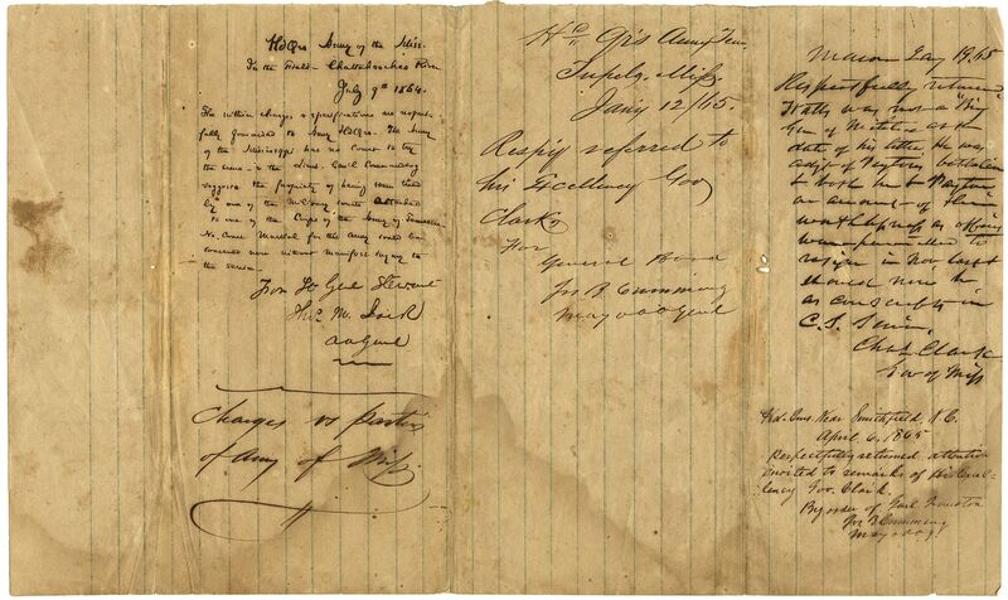 HdQrs Army of the Miss.
In the Field - Chattahoochee River
July 9th 1864.
The within charges & specifications are respect-
fully forwarded to Army HdQrs. The Army
of the Mississippi has no Court to try
the case & the Lieut. Genl Commanding
suggests the propriety of being
by one of the Military Courts attached
to one of the Corps of the Army of Tennessee
No Court Martial for the Army could be
convened now without manifest injury to
the service.
From Lt Genl Stewart
M. Jack
aaGenl
Charges vs parties
of Army of Miss.
Hd Qrs Army Ten.
Tupelo. Miss.
Jany 12/65.
Resply referred to
his Excellency Gov
Clark
For
General Hood
B. Cumming
Maj & aaGenl
Macon 19, 65
Respectfully returned
Watts was not a Brig
Gen of Militia at the
date of his letter He was
adjt of Paytons battalion
& both he & Payton
on account of their
worthlessness as officers
were permitted to
resign in Nov last &
should now be
as conscripts in
C. S. Service.
Chas Clark
Gov of Miss
Hd. Qrs. Near Smithfield, N.C.
April 6, 1865
Respectfully returned attention
invited to remarks of His Excel-
lency Gov. Clark.
By order of Genl
B Cumming
Maj & aag